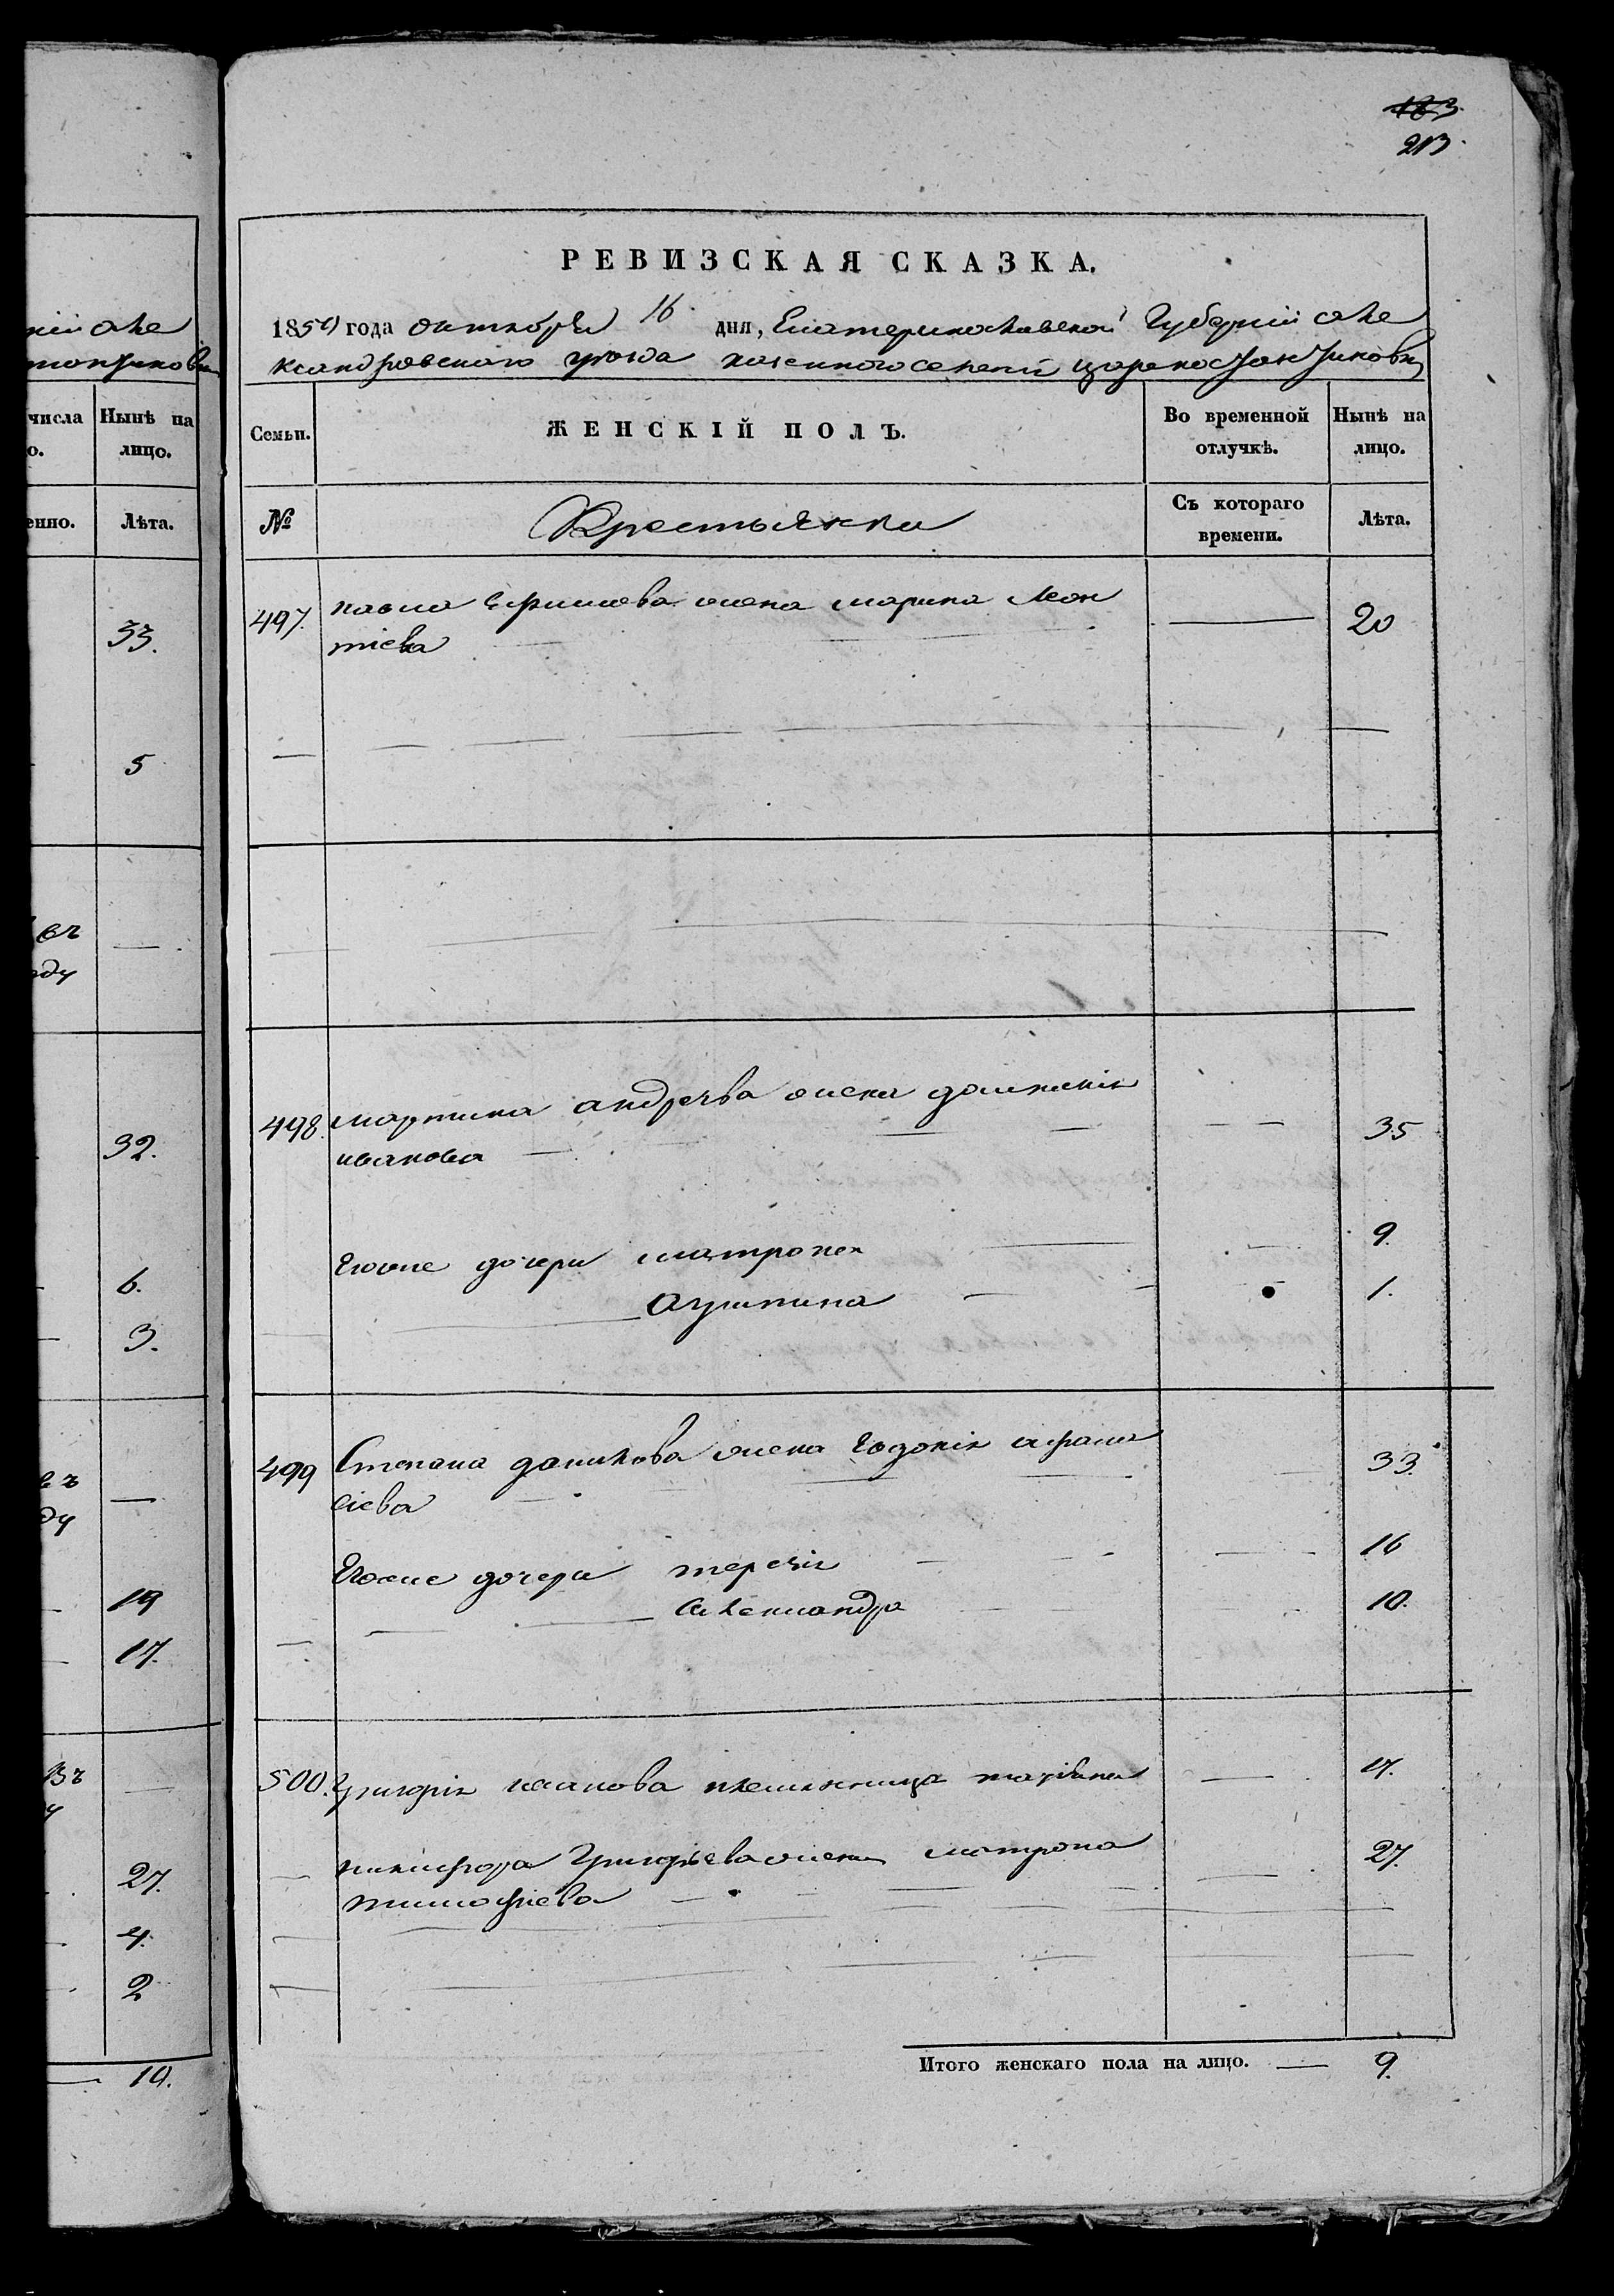 ній Але
тонтиновки
числа
о.
Нынѣ на
лицо.
енно.
Лѣта.
33.
5
въ
оду
—
32.
6.
3.
въ
ду
—
19
17.
въ
у
—
27.
4.
2
10.
183.
213.
РЕВИЗСКАЯ СКАЗКА.
1850 года октября 16 дня, Екатеринославской Губерніи Але
ксандровского уезда казенного селенія Цареконстантиновки
Семьи.
ЖЕНСКІЙ ПОЛЪ.
Во временной
отлучкѣ.
Нынѣ на
лицо.
№
Крестьянки
Съ котораго
времени.
Лѣта.
497. павла Ефимова жена марина Леон — 20
тіева
498. мартина андреева жена домникія — 35
иванова
Егоже дочери матрона — 9.
агрипина — 1.
499 Степана данилова жена Евдокія афана 33.
сіева
Егоже дочери терезія — 16
александра 10.
500. Григорія иванова племянница татіяна — 17.
никифора Григорьева жена матрона — 27.
тимофіева
Итого женскаго пола на лицо. — 9.